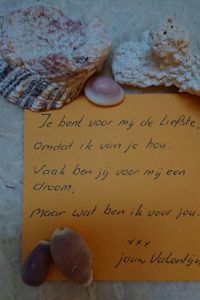 Je bent voor mij de liefste,
Omdat ik van je hou.
Vaak ben jij voor mij een
droom,
Maar wat ben ik voor jou.
xxx
jouw Valentijn